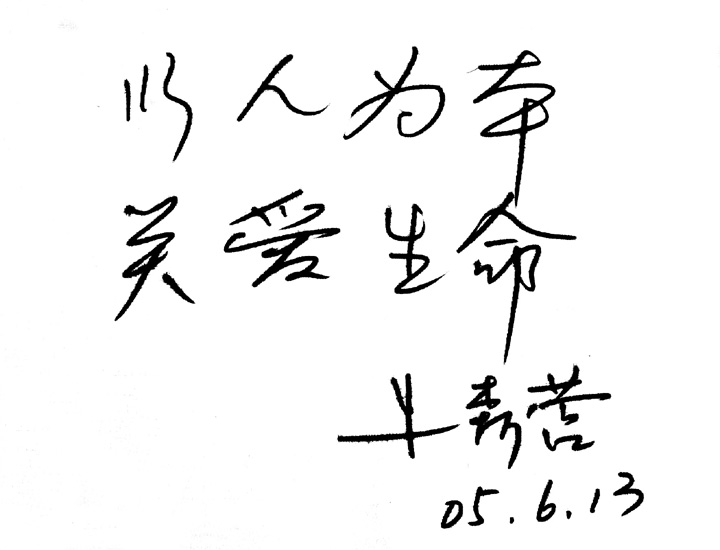 以人为本
关爱生命
05.6.13